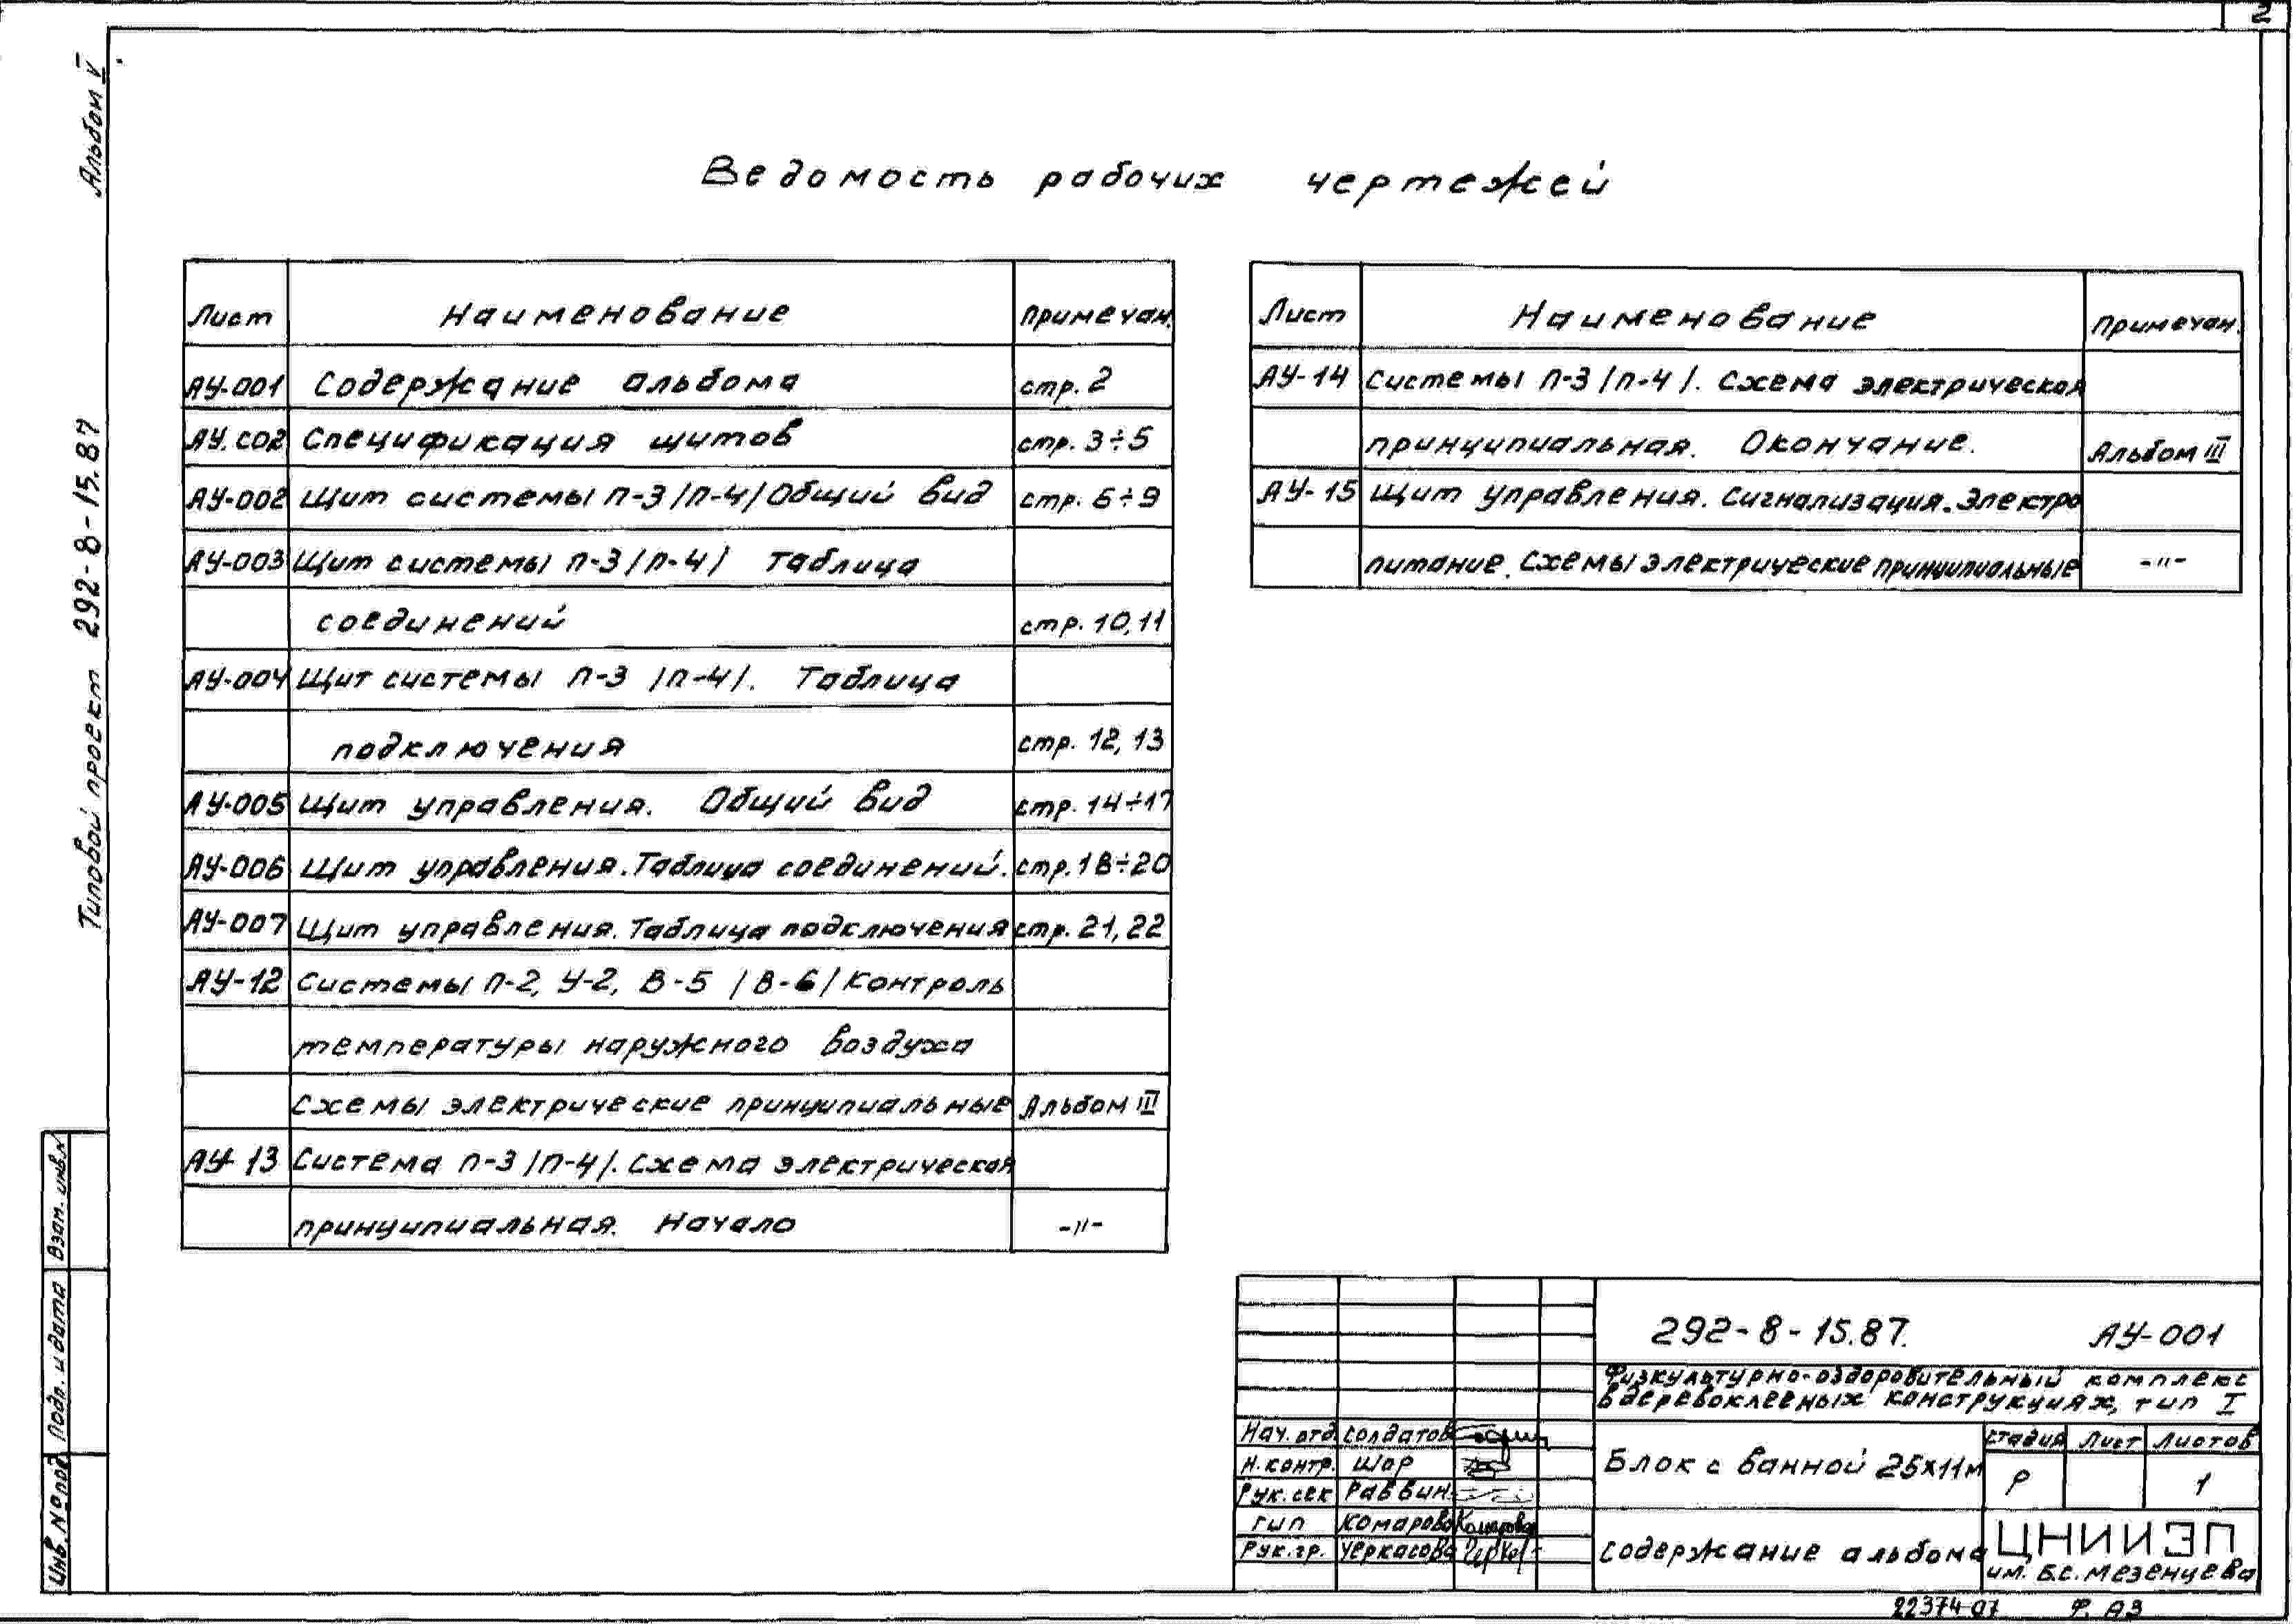 2
Альбом V
Типовой проект 292-8-15.87
Взам. инв.№
Подп. и дата
Инв. № под
Ведомость рабочих чертежей
Лист Наименование Примечан.
АУ-001 Содержание альбома стр. 2
АУ.СО2 Спецификация щитов стр. 3÷5
АУ-002 Щит системы П-3 /П-4/ Общий вид стр. 6÷9
АУ-003 Щит системы П-3 /П-4/ Таблица
соединений стр. 10,11
АУ-004 Щит системы П-3 /П-4/. Таблица
подключения стр. 12, 13
АУ-005 Щит управления. Общий вид стр. 14÷17
АУ-006 Щит управления. Таблица соединений. стр. 18÷20
АУ-007 Щит управления. Таблица подключения стр. 21, 22
АУ-12 Системы П-2, У-2, В-5 /В-6/ Контроль
температуры наружного воздуха
Схемы электрические принципиальные Альбом III
АУ-13 Система П-3 /П-4/. Схема электрическая
принципиальная. Начало -"-
Лист Наименование Примечан.
АУ-14 Системы П-3 /П-4/. Схема электрическая
принципиальная. Окончание. Альбом III
АУ-15 Щит управления. Сигнализация. Электро
питание. Схемы электрические принципиальные -"-
292-8-15.87. АУ-001
Физкультурно-оздоровительный комплекс
в деревоклееных конструкциях, тип I
Нач. отд. Солдатов
Н. контр. Шор
Рук. сек Раввин.
ГИП Комарова Комарова
Рук. гр. Черкасова
Блок с ванной 25х11м
Стадия Лист Листов
Р 1
Содержание альбома
ЦНИИЭП
им. Б.С. Мезенцева
22374-07 Ф. А3